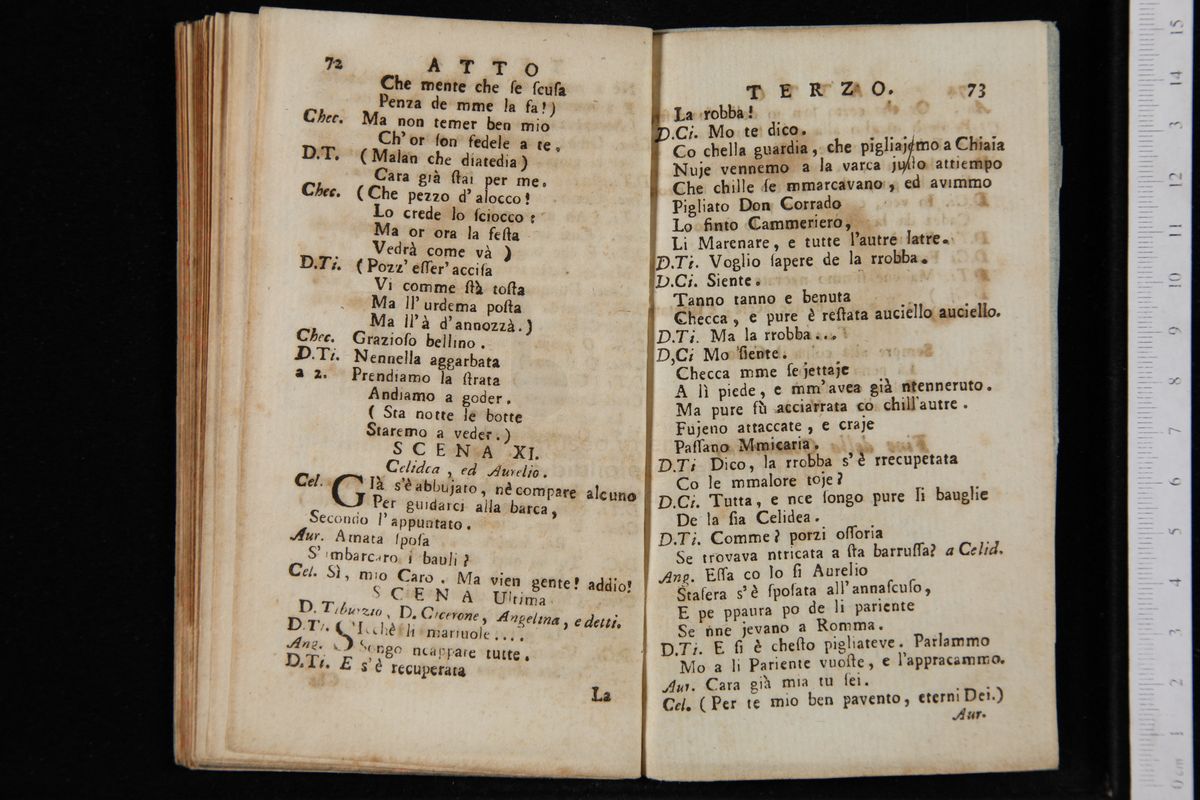 72 ATTO
Che mente che ſe ſcuſa
Penza de mme la fa!)
Chec. Ma non temer ben mio
Ch' or ſon fedele a te.
D.T. (Malan che diatedia)
Cara già ſtai per me.
Chec. (Che pezzo d'alocco!
Lo crede lo ſciocco:
Ma or ora la feſta
Vedrà come và )
D.Ti. (Pozz' eſſer' acciſa
Vi comme ſtà toſta
Ma ll' urdema poſta
Ma ll'à d'annozzà.)
Chec. Grazioſo bellino.
D.Ti. Nennella aggarbata
a 2. Prendiamo la ſtrata
Andiamo a goder.
( Sta notte le botte
Staremo a veder.)
SCENA XI.
Celidea, ed Aurelio.
Cel. Già s'è abbujato, nè compare alcuno
Per guidarci alla barca,
Secondo l'appuntato.
Aur. Amata ſpoſa
S'imbarcaro i bauli?
Cel. Sì, mio Caro. Ma vien gente! addio!
SCENA Ultima.
D. Tiburzio, D. Cicerone, Angelina, e detti.
D.Ti. Sicchè li mariuole....
Ang. Songo ncappate tutte.
D.Ti. E s'è recuperata
La
TERZO. 73
La robba!
D.Ci. Mo te dico.
Co chella guardia, che pigliajemo a Chiaia
Nuje vennemo a la varca juſto attiempo
Che chille ſe mmarcavano, ed avimmo
Pigliato Don Corrado
Lo finto Cammeriero,
Li Marenare, e tutte l'autre latre.
D.Ti. Voglio ſapere de la rrobba.
D.Ci. Siente.
Tanno tanno e benuta
Checca, e pure è reſtata auciello auciello.
D.Ti. Ma la rrobba...
D,Ci Mo ſiente.
Checca mme ſe jettaje
A lì piede, e mm'avea già ntenneruto.
Ma pure fù acciarrata co chill'autre.
Fujeno attaccate, e craje
Paſſano Mmicaria.
D.Ti Dico, la rrobba s'è rrecupetata
Co le mmalore toje?
D.Ci. Tutta, e nce ſongo pure li bauglie
De la ſia Celidea.
D.Ti. Comme? porzi oſſoria
Se trovava ntricata a ſta barruſſa? a Celid.
Ang. Eſſa co lo ſi Aurelio
Staſera s'è ſpoſata all'annaſcuſo,
E pe ppaura po de li pariente
Se nne jevano a Romma.
D.Ti. E ſi è cheſto pigliateve. Parlammo
Mo a li Pariente vuoſte, e l'appracammo.
Aur. Cara già mia tu ſei.
Cel. (Per te mio ben pavento, eterni Dei.)
Aur.